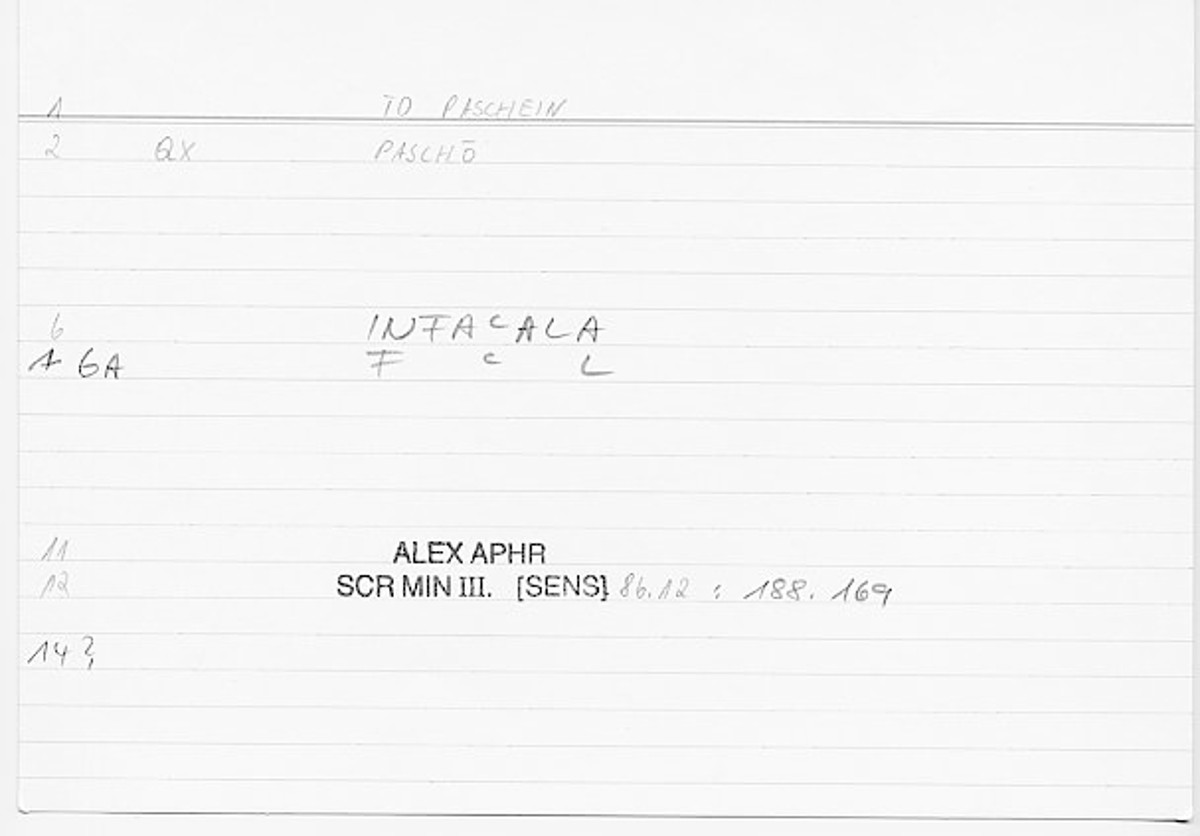 1 TO PASCHEIN
2 QX PASCHŌ
6 INFACALA
1 6A F C L
11 ALEX APHR
12 SCR MIN III. [SENS] 86.12 : 188.169
14 ?